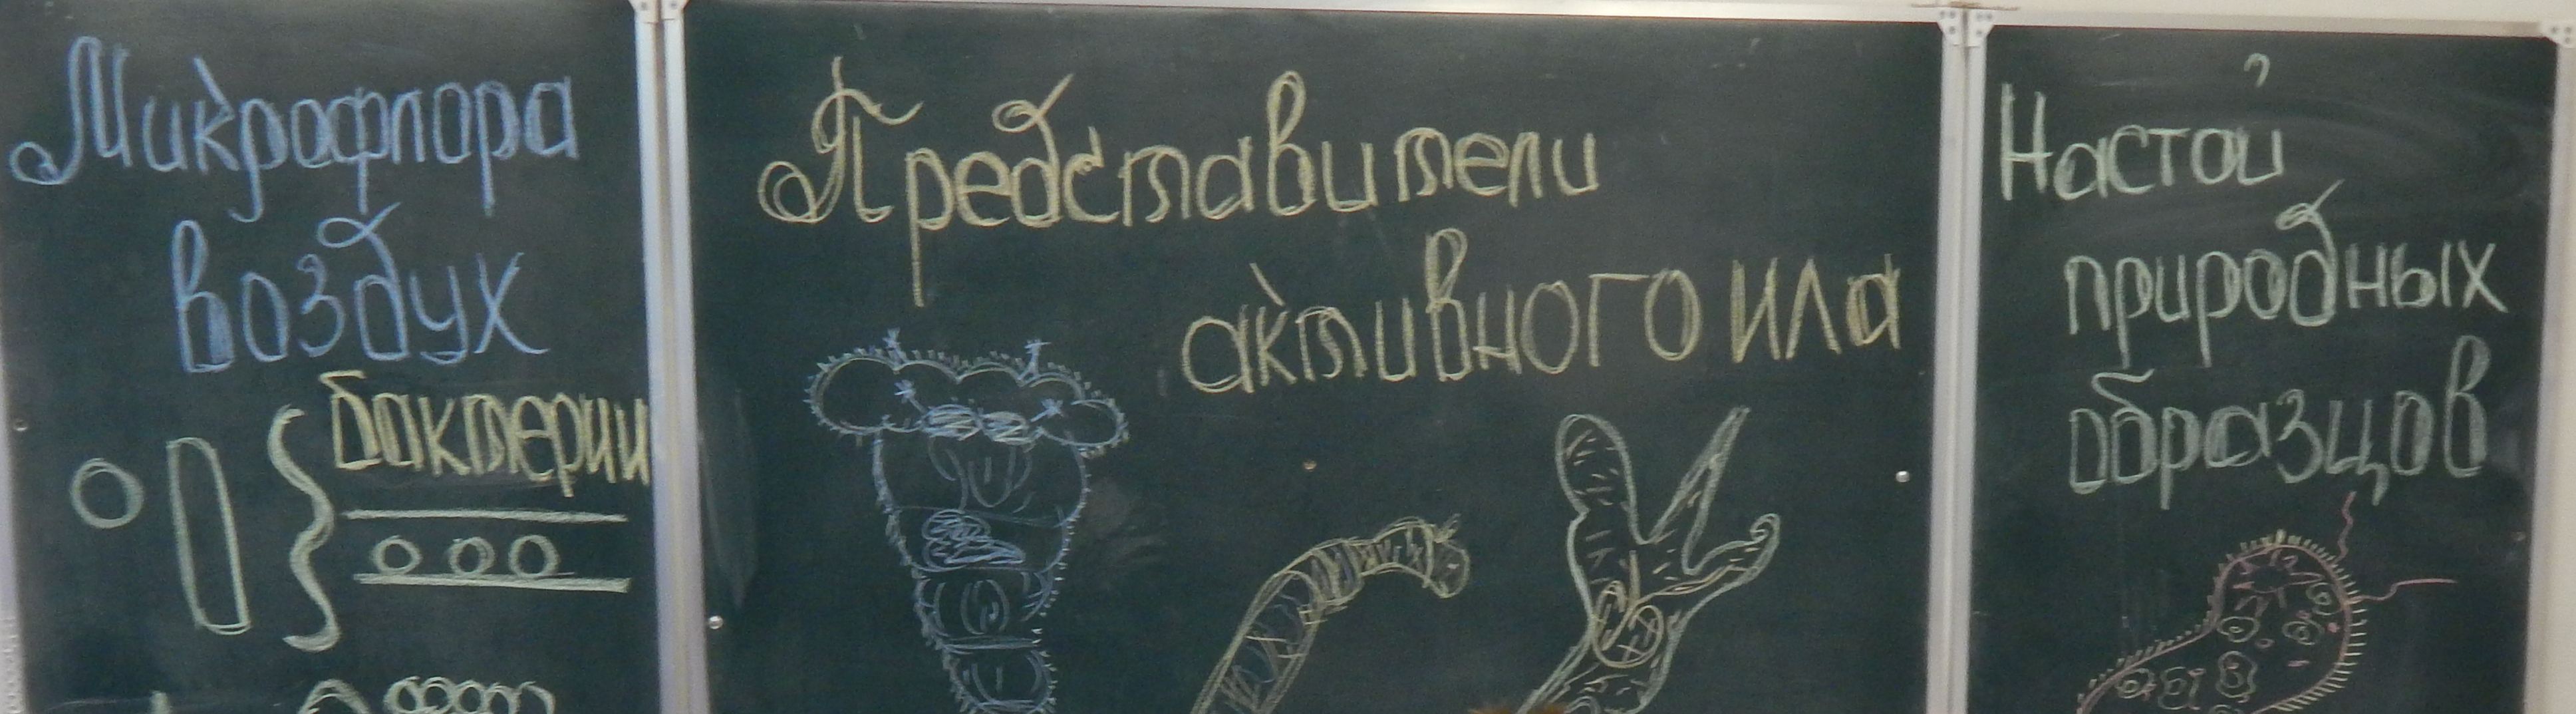 Микрофлора
воздух
бактерии
Представители
активного ила
Настой
природных
образцов